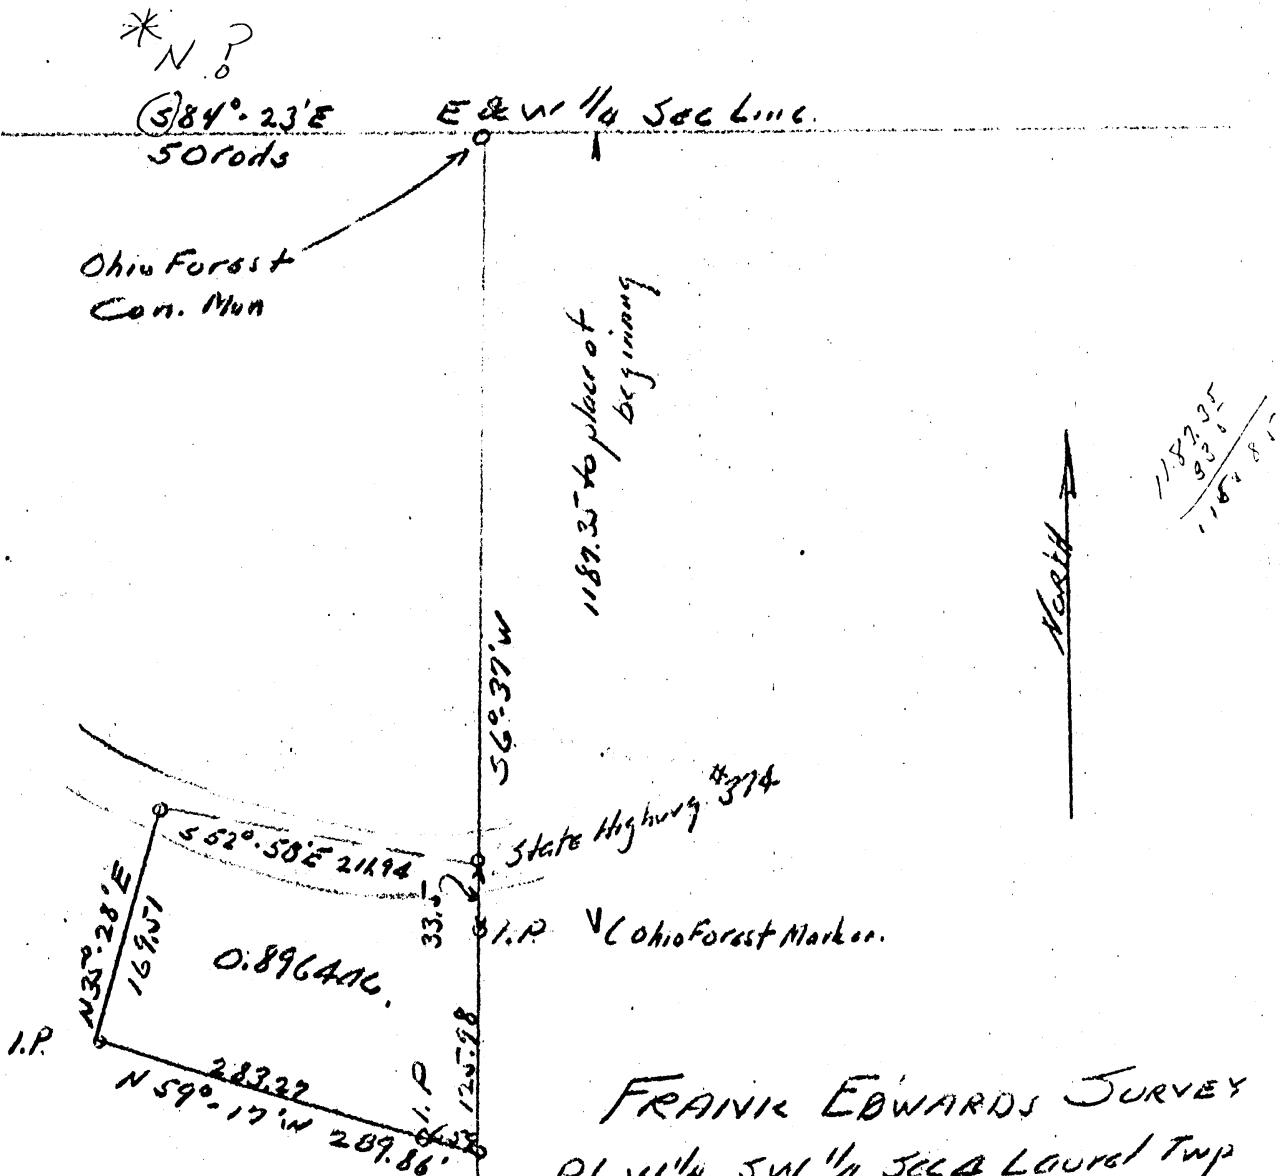 *N?
S 84°-23'E
50 rods
E & W 1/4 Sec Line.
Ohio Forest
Con. Mon
1187.35 to place of
beginning
1187.35
33.5
S 6°-37'W
North
State Highway #374
S 52°-58'E 211.94
33.5
I.P.
Ohio Forest Marker.
N 35°-28'E
169.51
0.8964 Ac.
I.P.
283.27
N 59°-17'W 289.86'
I.P.
125.98
FRANK EDWARDS SURVEY
SW 1/4 Sec 4 Laurel Twp